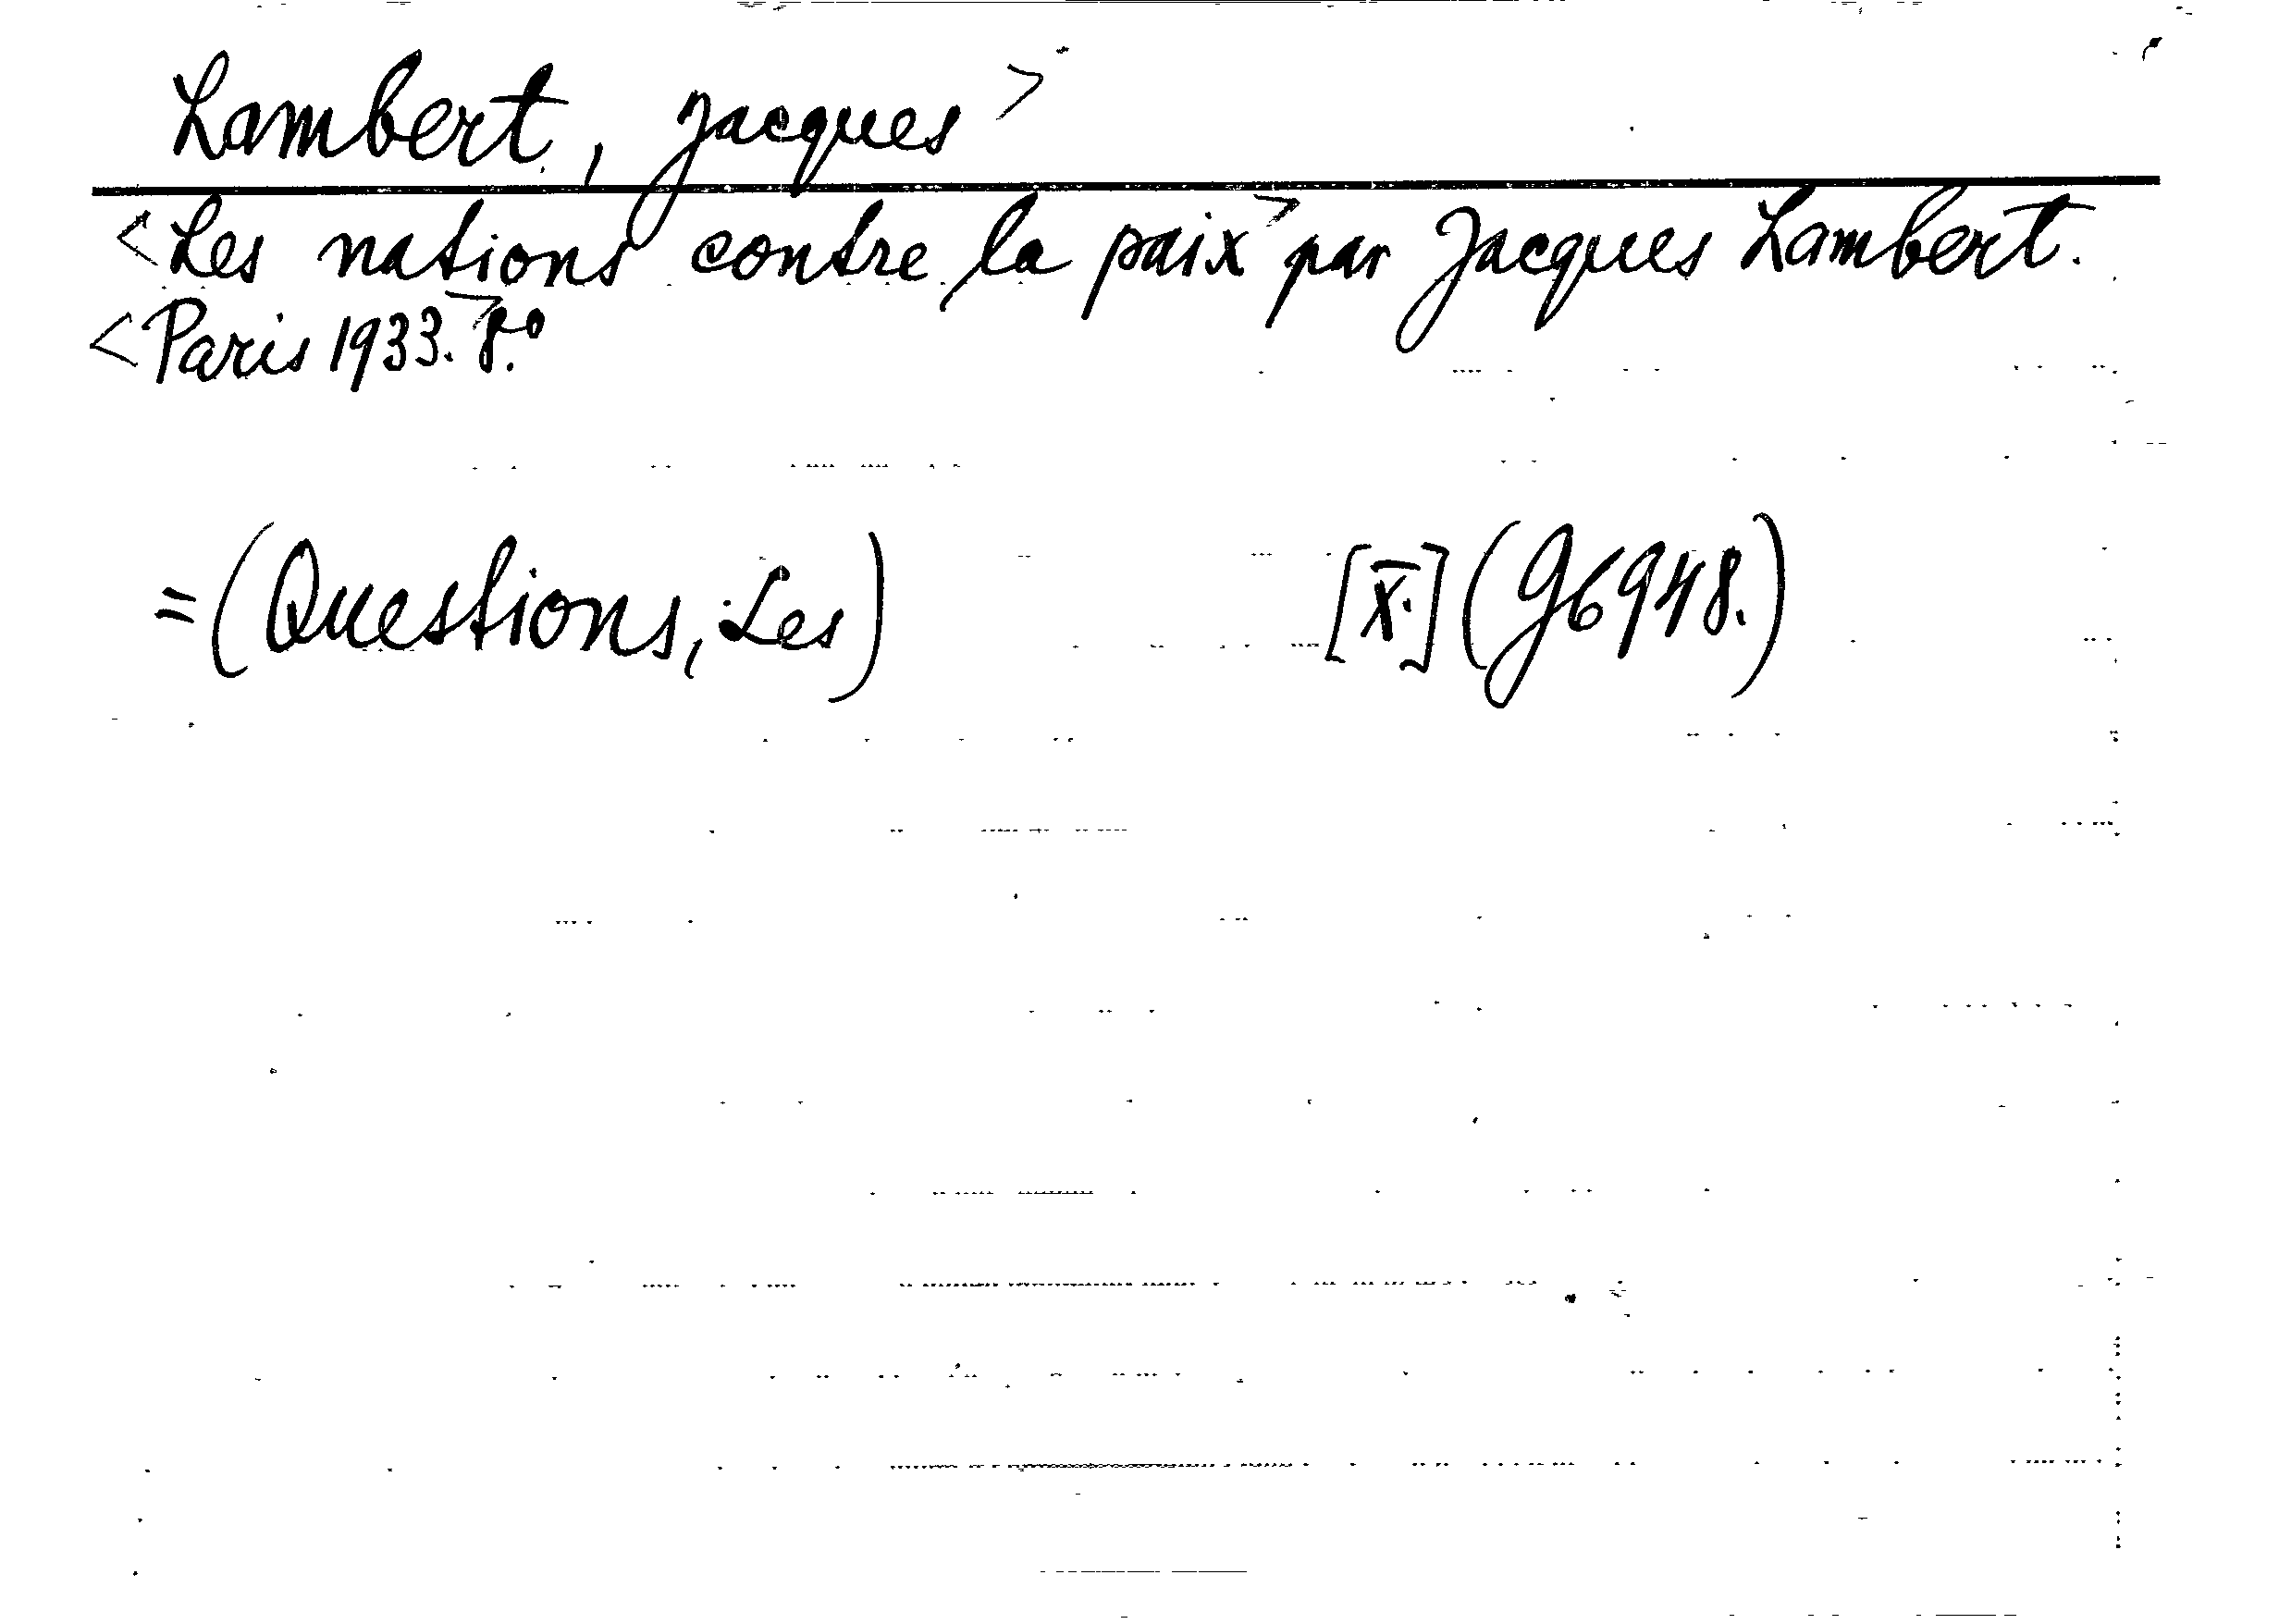 Lambert, Jacques>
<Les nations contre la paix> par Jacques Lambert.
<Paris 1933.> 8.º
=(Questions, Les) [X.] (G6948.)